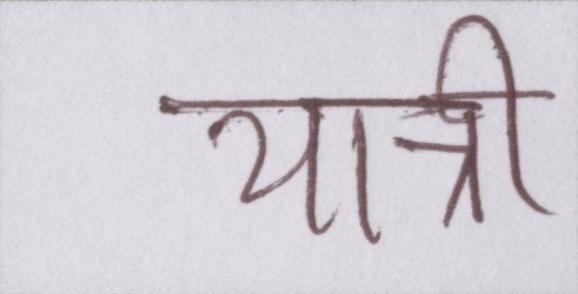 यात्री